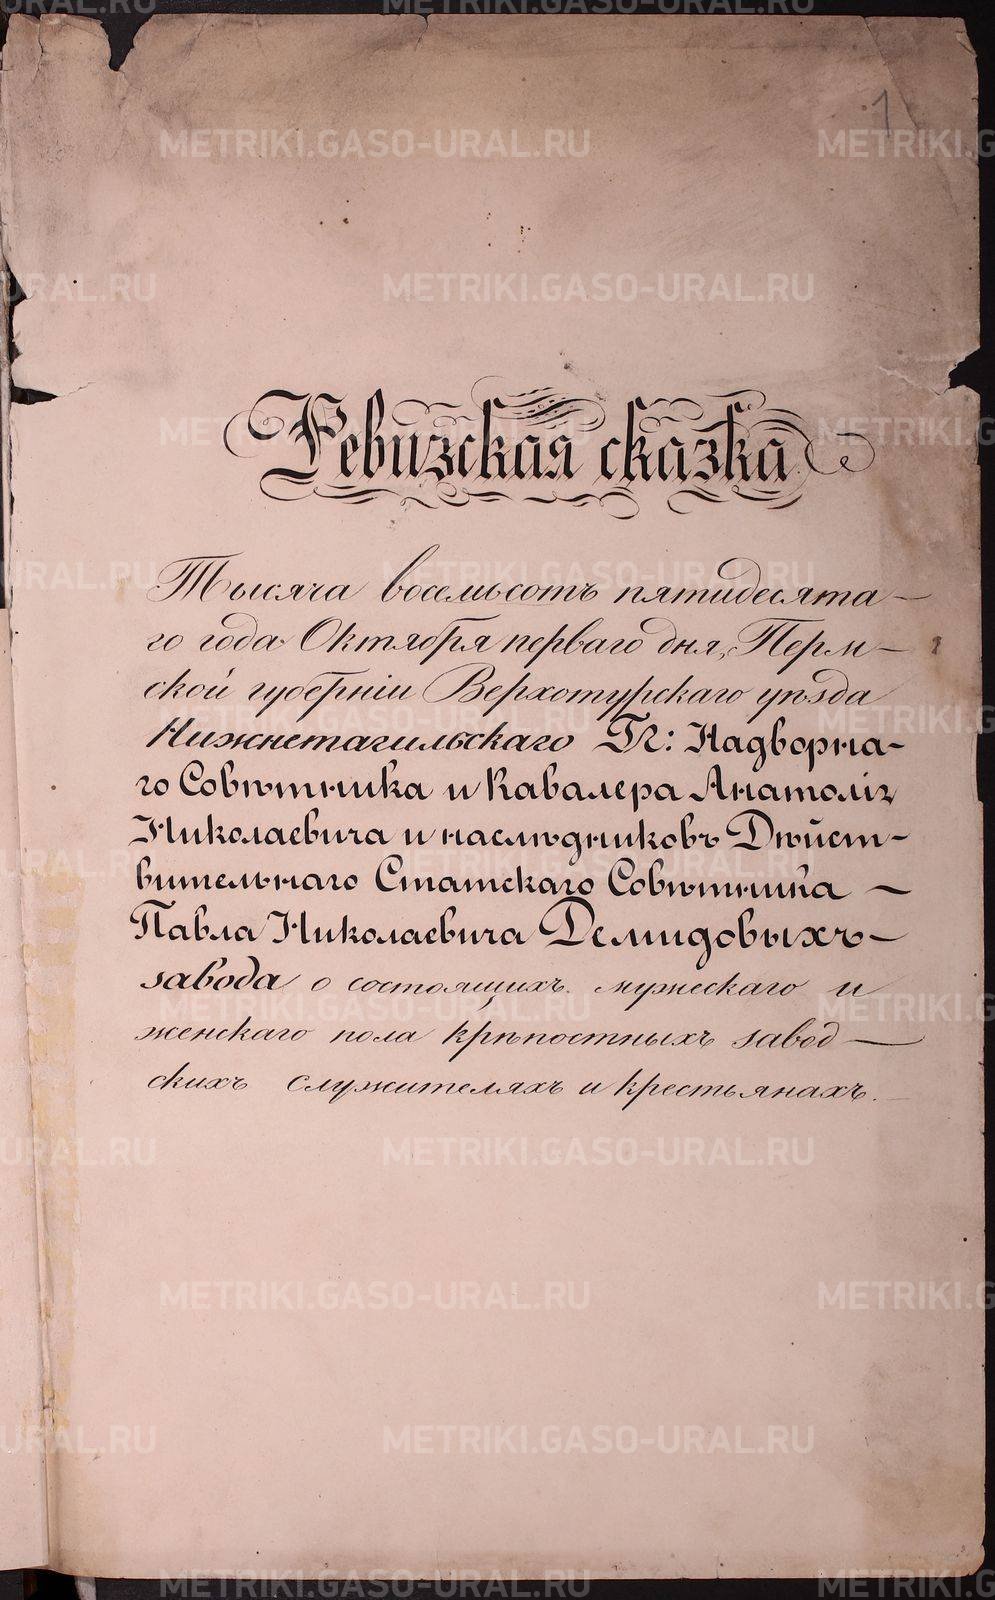 1
Ревизская сказка
Тысяча восемьсотъ пятидесята-
го года Октября перваго дня, Перм-
ской губерніи Верхотурскаго уѣзда
Нижнетагильскаго ГГ: Надворна-
го Совѣтника и Кавалера Анатолія
Николаевича и наслѣдниковъ Дѣйст-
вительнаго Статскаго Совѣтника —
Павла Николаевича Демидовыхъ —
завода о состоящихъ мужескаго и
женскаго пола крѣпостныхъ завод —
скихъ служителяхъ и крестьянахъ.
METRIKI.GASO-URAL.RU